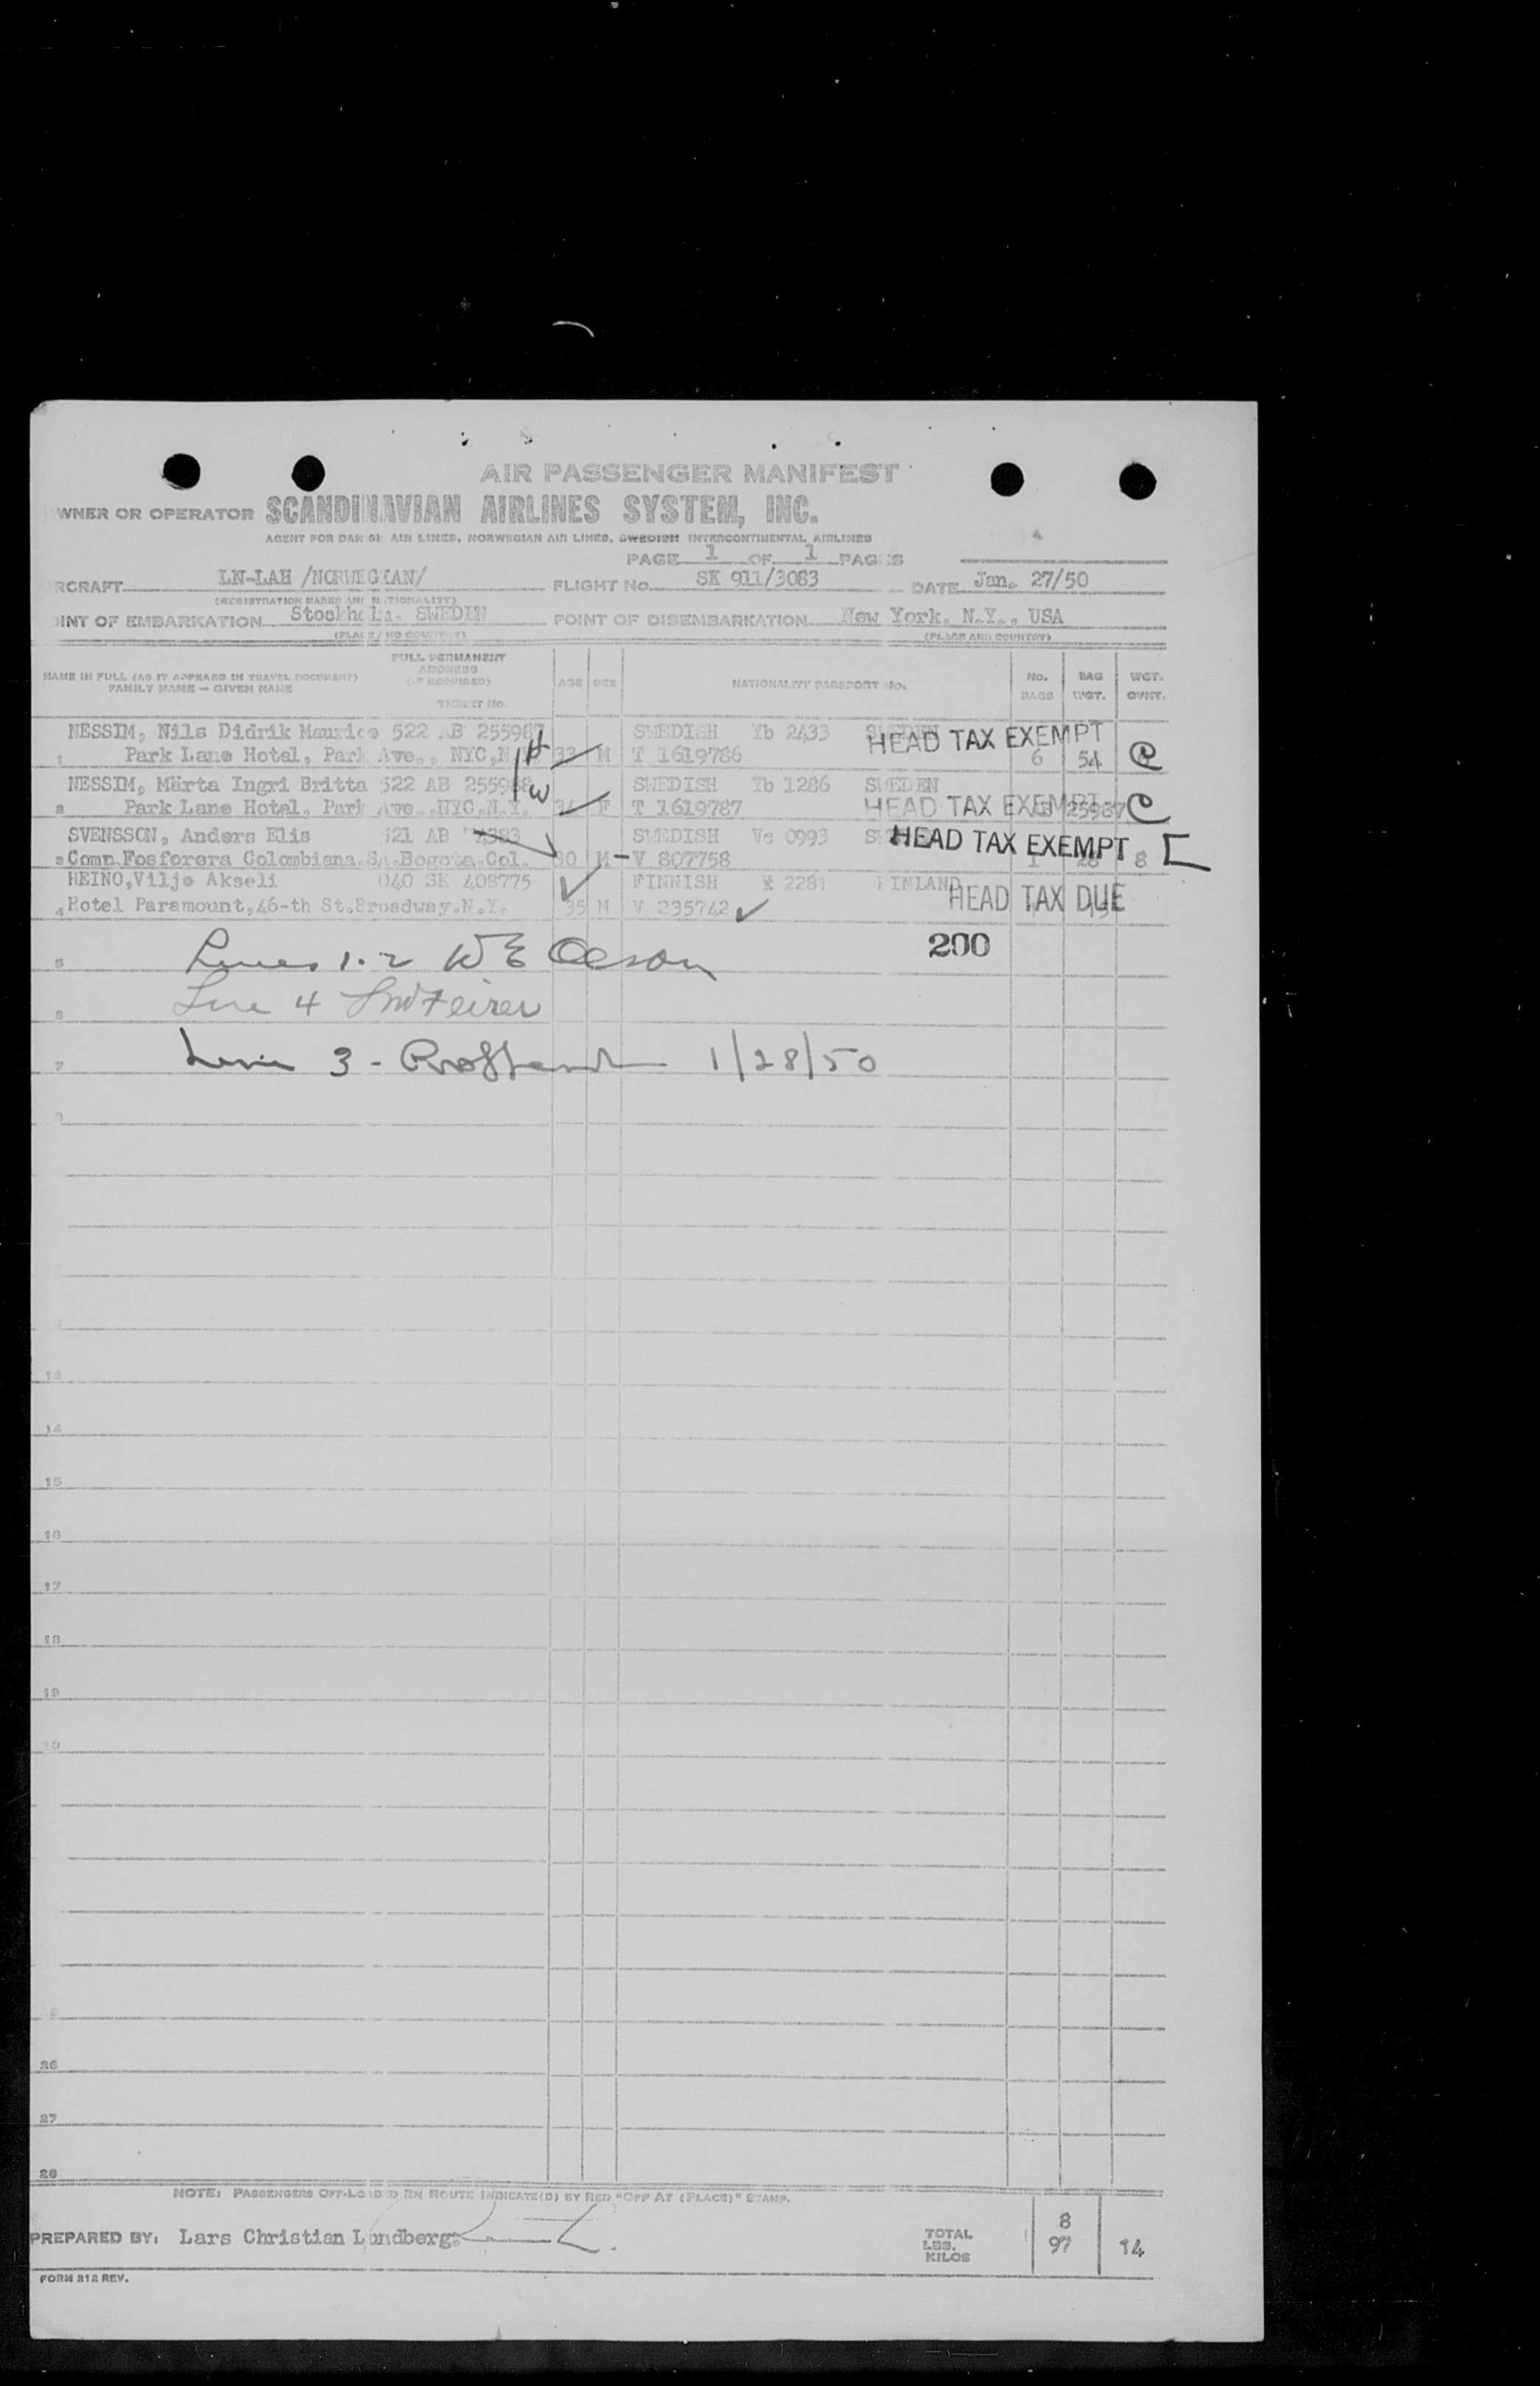 AIR PASSENGER MANIFEST
WNER OR OPERATOR SCANDINAVIAN AIRLINES SYSTEM, INC.
AGENT FOR DANISH AIR LINES, NORWEGIAN AIR LINES, SWEDISH INTERCONTINENTAL AIRLINES
PAGE 1 OF 1 PAGES
RCRAFT LN-LAH /NORWEGIAN/ FLIGHT No. SK 911/3083 DATE Jan. 27/50
(REGISTRATION MARKS AND NATIONALITY)
OINT OF EMBARKATION Stockholm. SWEDEN POINT OF DISEMBARKATION New York. N.Y., USA
(PLACE AND COUNTRY) (PLACE AND COUNTRY)
NAME IN FULL (AS IT APPEARS IN TRAVEL DOCUMENT) FAMILY NAME — GIVEN NAME
FULL PERMANENT ADDRESS (IF REQUIRED) TICKET No.
AGE SEX NATIONALITY PASSPORT No. No. BAGS BAG WGT. WGT. OVWT.
NESSIM, Nils Didrik Maurice 522 AB 255987 SWEDISH Yb 2433 SWEDEN
HEAD TAX EXEMPT
1 Park Lane Hotel, Park Ave., NYC,N.Y. H 33 M T 1619786 6 54 C
NESSIM, Märta Ingri Britta 522 AB 255988 W SWEDISH Yb 1286 SWEDEN
2 Park Lane Hotel. Park Ave..NYC.N.Y. F T 1619787 HEAD TAX EXEMPT 25987 C
SVENSSON, Anders Elis 521 AB SWEDISH Vc 0993 HEAD TAX EXEMPT
3 Comp.Fosforera Colombiana.SA.Bogota.Col. 30 M - V 807758 1 28 8
HEINO,Viljo Akseli 040 SK 408775 FINNISH 2281 FINLAND
HEAD TAX DUE
4 Hotel Paramount,46-th St.Broadway.N.Y. 35 M V 235742
200
5 Lines 1-2 W E Oleson
6 Line 4
7 Line 3 - 1/28/50
13
14
15
16
17
18
19
26
27
28
NOTE: PASSENGERS OFF-LOADED EN ROUTE INDICATE(D) BY RED "OFF AT (PLACE)" STAMP.
PREPARED BY: Lars Christian Lundberg.
TOTAL 8
LBS. KILOS 97 14
FORM 212 REV.